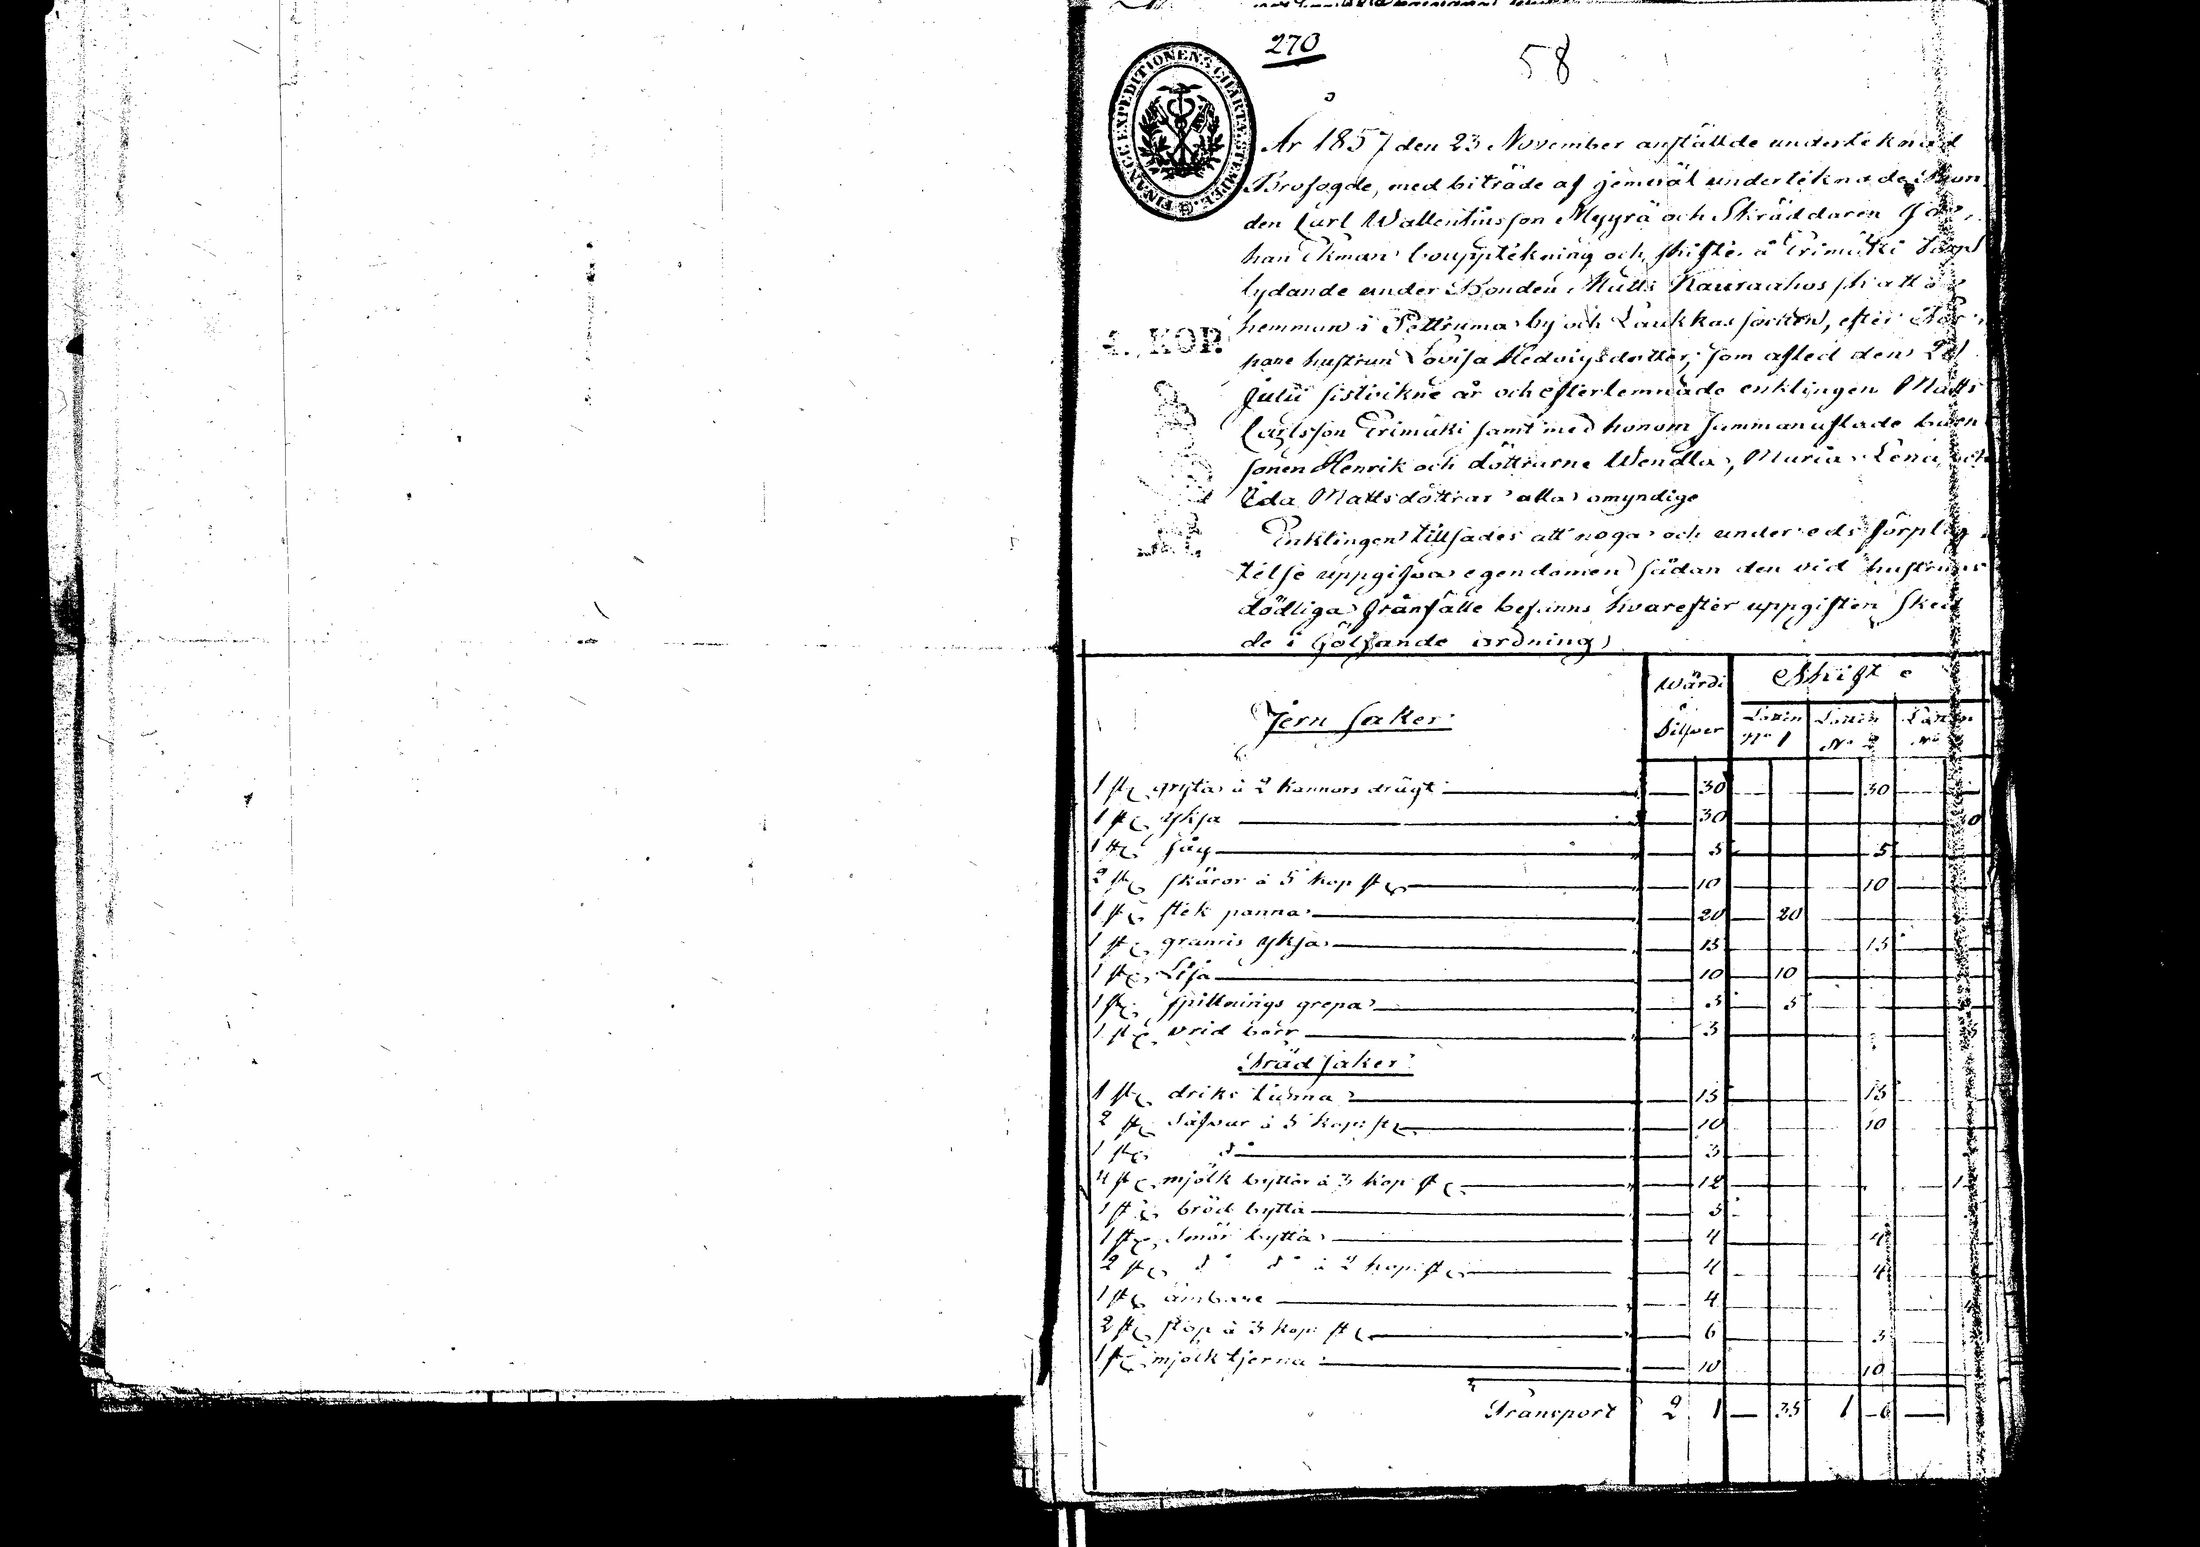 270
58
FINANCE EXPEDITIONENS CHARTÆ STEMPEL
År 1857 den 23 November anställde undertéknad
Brofogde, med biträde af jemväl undertéknade Bon
den Carl Wallentinsson Myyrä och Skräddaren Jo
han Ekman bouppteckning och skifte å Trimuki Torp
lydande under Bonden Matts Kauraahos skatte
hemman i Pettruma by och Laukkas sockn, efter Tor
pare hustrun Lovisa Hedvigsdotter, som afled den
Julii sistvikne år och efterlemnade enklingen Matts
Carlsson Trimuki samt med honom sammanaflade barn
sonen Henrik och döttrarne Wendla, Maria Lena och
Eda Mattsdöttrar alla omyndige
4. KOP.
Enklingen tillsades att noga och under eds förplig
telse uppgifva egendomen sådan den vid hustruns
dödliga frånfälle befanns hvarefter uppgiften sked
de i följande ordning
Wärdi Skifte
Jern saker
Silfver Lotten No 1 Lotten No 2 Lotten No
1 st gryta à 2 kannors drägt 30 30
1 st yksa 30 30
1 st såg 5 5
2 st skäror à 5 kop st 10 10
1 st stek panna 20 20
1 st grannis yksa 15 15
1 st Lija 10 10
1 st spillnings grepa 5 5
1 st vrid borr 3 3
Träd saker
1 st driks tunna 15 15
2 st Såfvar à 5 kop st 10 10
1 st do 3
4 st mjölk byttor à 3 kop st 12 1
1 st bröd bytta 5
1 st Smör bytta 4 4
2 st do do à 2 kop st 4 4
1 st ämbare 4 4
2 st stop à 3 kop st 6 3
1 st mjölk tjerna 10 10
Transport 2 1 35 1 6